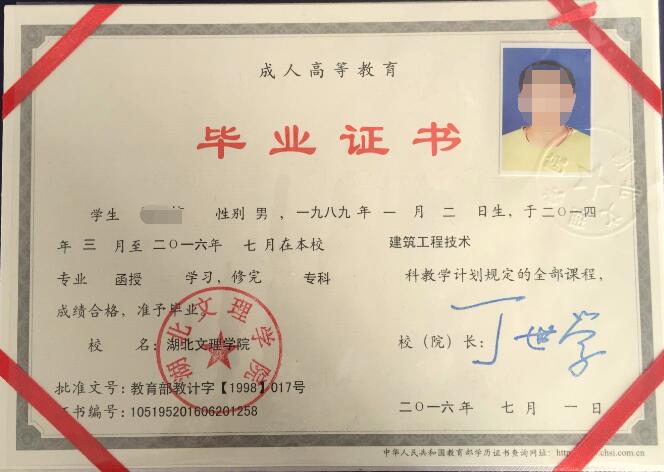 成人高等教育
毕业证书
学生 性别 男 ，一九八九年 一 月 二 日生，于二〇一四
年 三 月至 二〇一六年 七月在本校 建筑工程技术
专业 函授 学习，修完 专科 科教学计划规定的全部课程，
成绩合格，准予毕业。
校 名：湖北文理学院 校（院）长：丁世学
湖北文理学院
批准文号：教育部教计字【1998】017号
证书编号：105195201606201258 二〇一六年 七月 一日
中华人民共和国教育部学历证书查询网址：http://www.chsi.com.cn